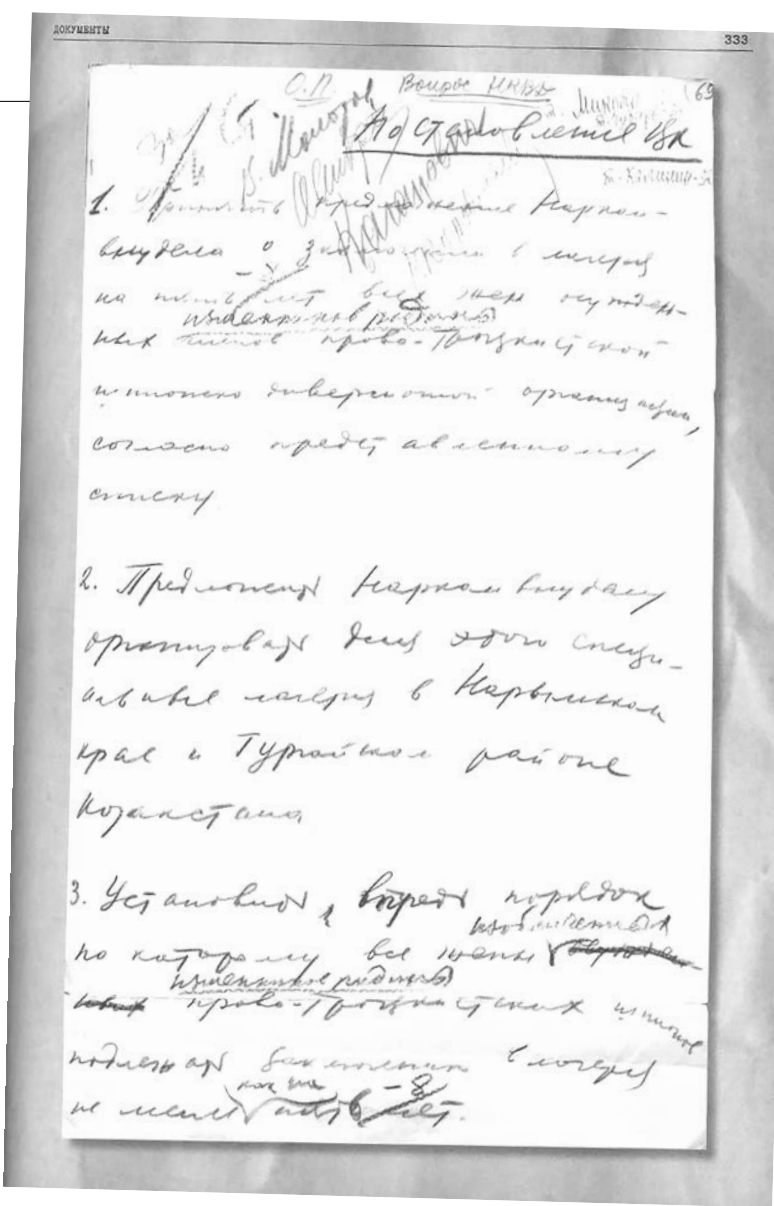 ДОКУМЕНТЫ
333
О.П. Вопрос НКВД
69
За Ст
В. Молотов
Каганович
т. Микоян
т. Калинин - за
Постановление ЦК
1. Принять предложение Нарком-
внудела о заключении в лагеря
на пять лет всех жен осужден-
изменников родины
ных членов право-троцкистской
шпионско диверсионной организации,
согласно представленному
списку
2. Предложить Наркомвнуделу
организовать для этого специ-
альные лагеря в Нарымском
крае и Тургайском районе
Казахстана
3. Установить впредь порядок
по которому все жены
изобличенных
изменников родины
право-троцкистских шпионов
подлежат заключению в лагеря
как на
5-8
не менее лет.